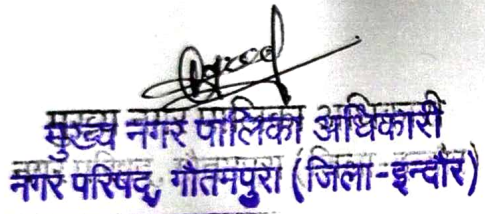 मुख्य नगर पालिका अधिकारी
नगर परिषद्, गौतमपुरा (जिला-इन्दौर)